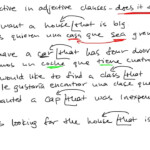 ctive in adjective clauses - does it
want a house that is big
s quieren una casa que sea gran
have a car that has four door
mos un coche que tiene cuatro
ould like to find a class that
le gustaría encontrar una clase que
anted a cap that was inexpen
s looking for the house that is